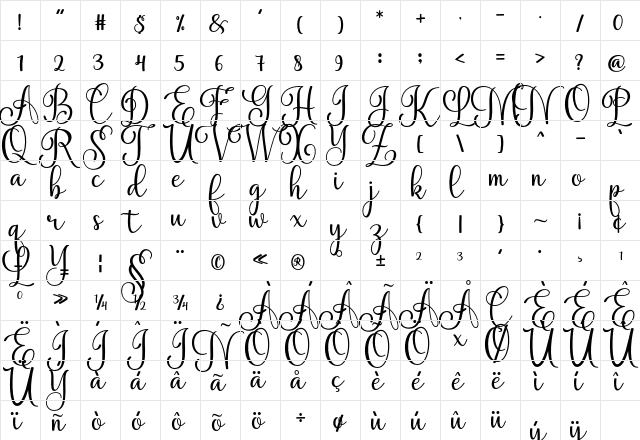 ! " # $ % & ' ( ) * + , - . / 0
1 2 3 4 5 6 7 8 9 : ; < = > ? @
A B C D E F G H I J K L M N O P
Q R S T U V W X Y Z [ \ ] ^ - `
a b c d e f g h i j k l m n o p
q r s t u v w x y z { | } ~ ¡ ¢
£ ¥ ¦ § ¨ © « ® ¯ ° ± 2 3 ´ · ¸ 1
0 » ¼ ½ ¾ ¿ À Á Â Ã Ä Å Ç È É Ê
Ë Ì Í Î Ï Ñ Ò Ó Ô Õ Ö × Ø Ù Ú Û
Ü Ý à á â ã ä å ç è é ê ë ì í î
ï ñ ò ó ô õ ö ÷ ø ù ú û ü ý ÿ